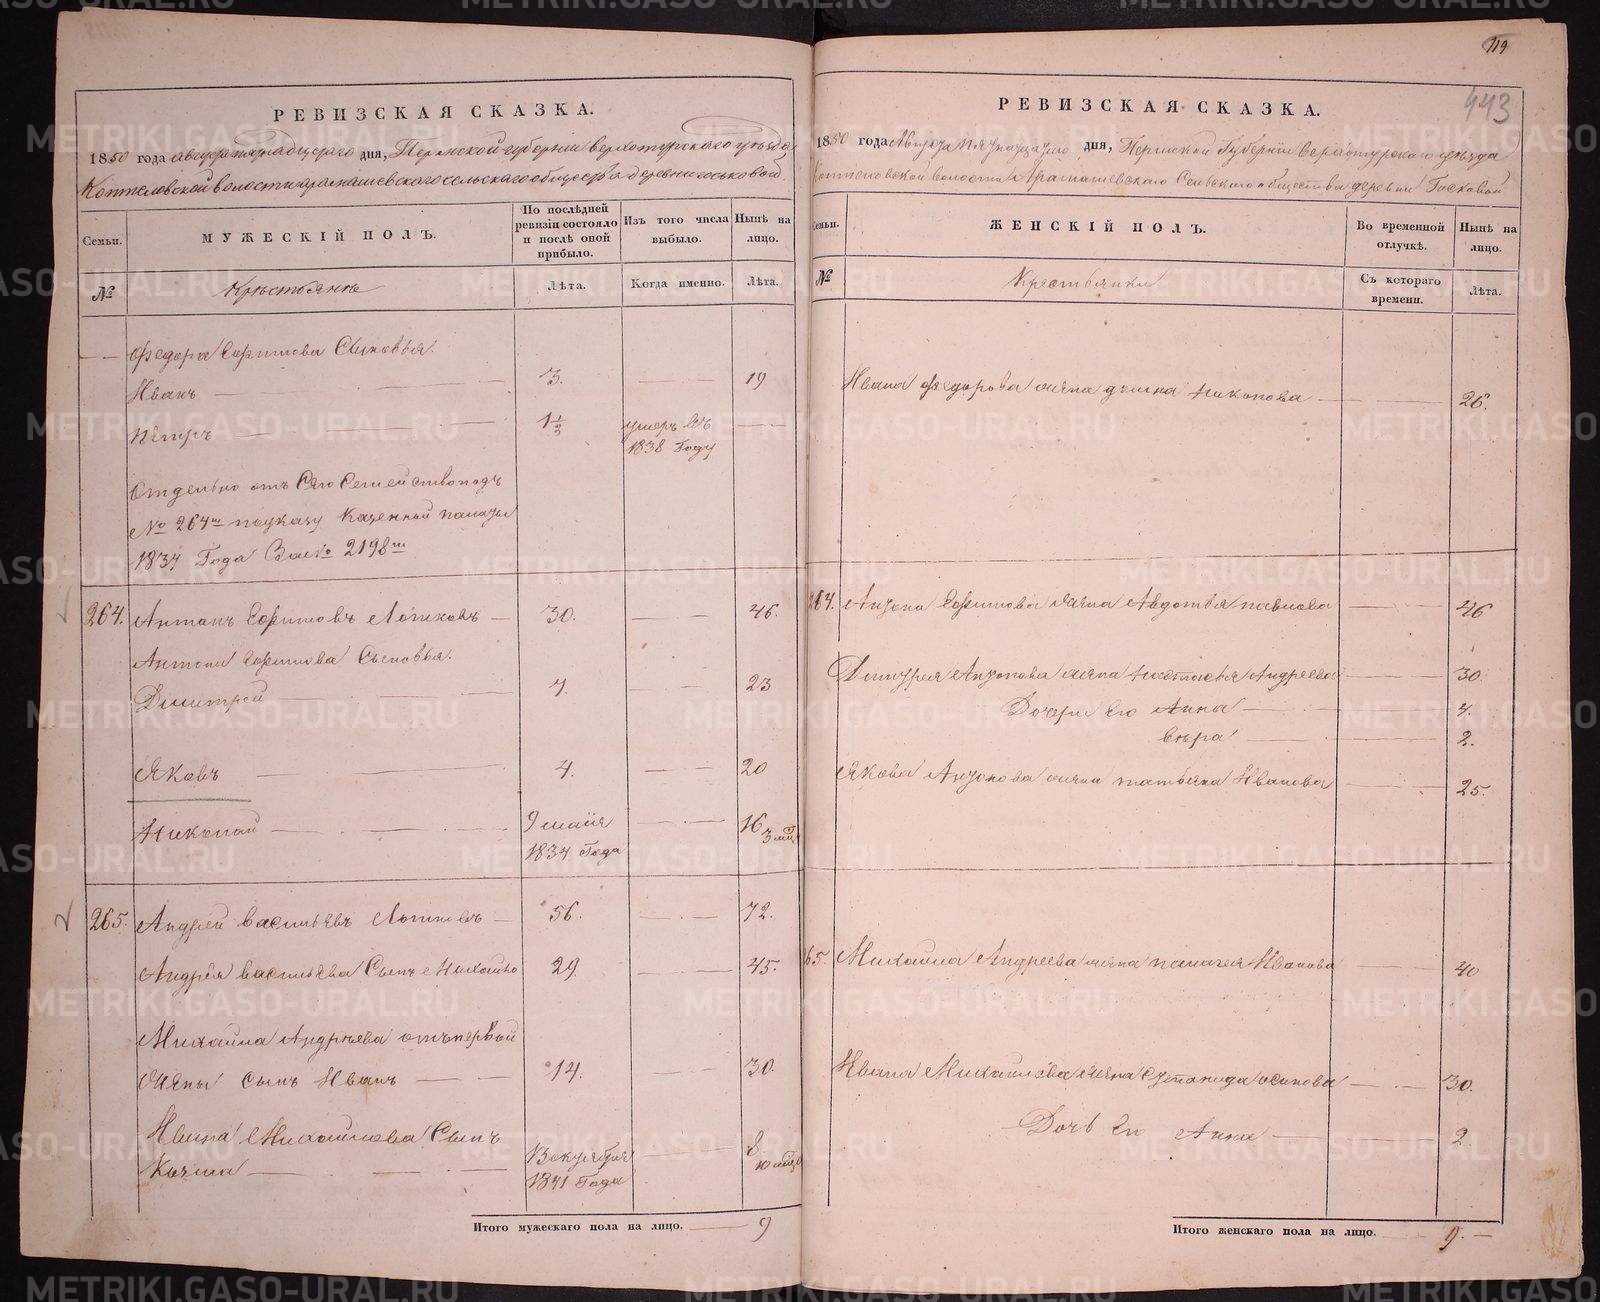 РЕВИЗСКАЯ СКАЗКА.
1850 года августа пятнадцатаго дня, Пермской губернии верхотурского уезда
волости арамашевского сельского общества деревни
Семьи.
МУЖЕСКІЙ ПОЛЪ.
По послѣдней ревизіи состояло и послѣ оной прибыло.
Изъ того числа выбыло.
Нынѣ на лицо.
№
Крестьянъ
Лѣта.
Когда именно.
Лѣта.
Федора Ефимова Сыновья.
Иванъ 3. 19
Петръ 1½ умеръ въ
1838 Году
Отдельно отъ Сего Семейства подъ
№ 264м по указу Казенной палаты
1837 Года За № 2198м
264. Антонъ Ефимовъ Лотковъ 30. 46.
Антона Ефимова Сыновья.
Дмитрей 7. 23
Яковъ 4. 20
Николай 9 маия 16
1834 Года 3 мц
265. Андрей васильевъ Лотковъ 56. 72.
Андрея васильева Сынъ Михайло 29. 45.
Михайла Андреева отъ первой
жены сынъ Иванъ 14. 30.
Ивана Михайлова Сынъ
Козма В октября 8
1841 Года 10 мцъ
Итого мужескаго пола на лицо. 9
119
443
РЕВИЗСКАЯ СКАЗКА.
1850 года Августа пятнадцатаго дня, Пермской Губернии верхотурского уезда
волости Арамашевскаго Сельскаго общества деревни Госковой
Семьи.
ЖЕНСКІЙ ПОЛЪ.
Во временной отлучкѣ.
Нынѣ на лицо.
№
Крестьянки
Съ котораго времени.
Лѣта.
Ивана федорова жена Николова 26.
264. Антона Ефимова жена Авдотья павлова 46
Дмитрея Антонова жена Настасья Андреева 30.
Дочери Его Анна 7.
вѣра 2.
Якова Антонова жена татьяна Иванова 25.
65. Михайла Андреева жена палагея Иванова 40
Ивана Михайлова жена Степанида осипова 30.
Дочь Его Анна 2
Итого женскаго пола на лицо. 9.
METRIKI.GASO-URAL.RU